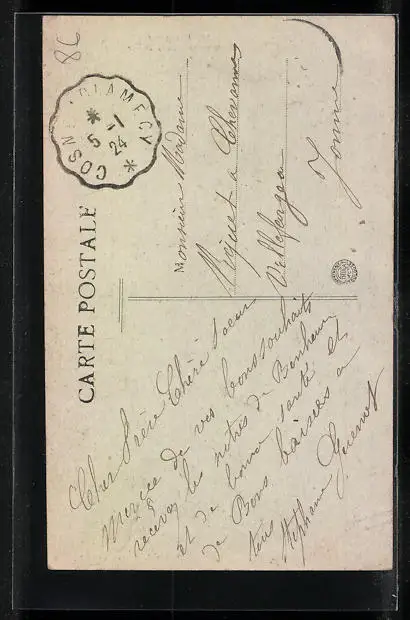 8C
COSNE A CLAMECY
5 -1
24
CARTE POSTALE
Monsieur Madame
à Chevannes
Villefargeau
Yonne
Cher Frère Chère Soeur
Mercie de vos bons souhaits
recevez les notres de Bonheur
et de bonne santé et
de Bons baises a
tous
Stéphanie Guenot